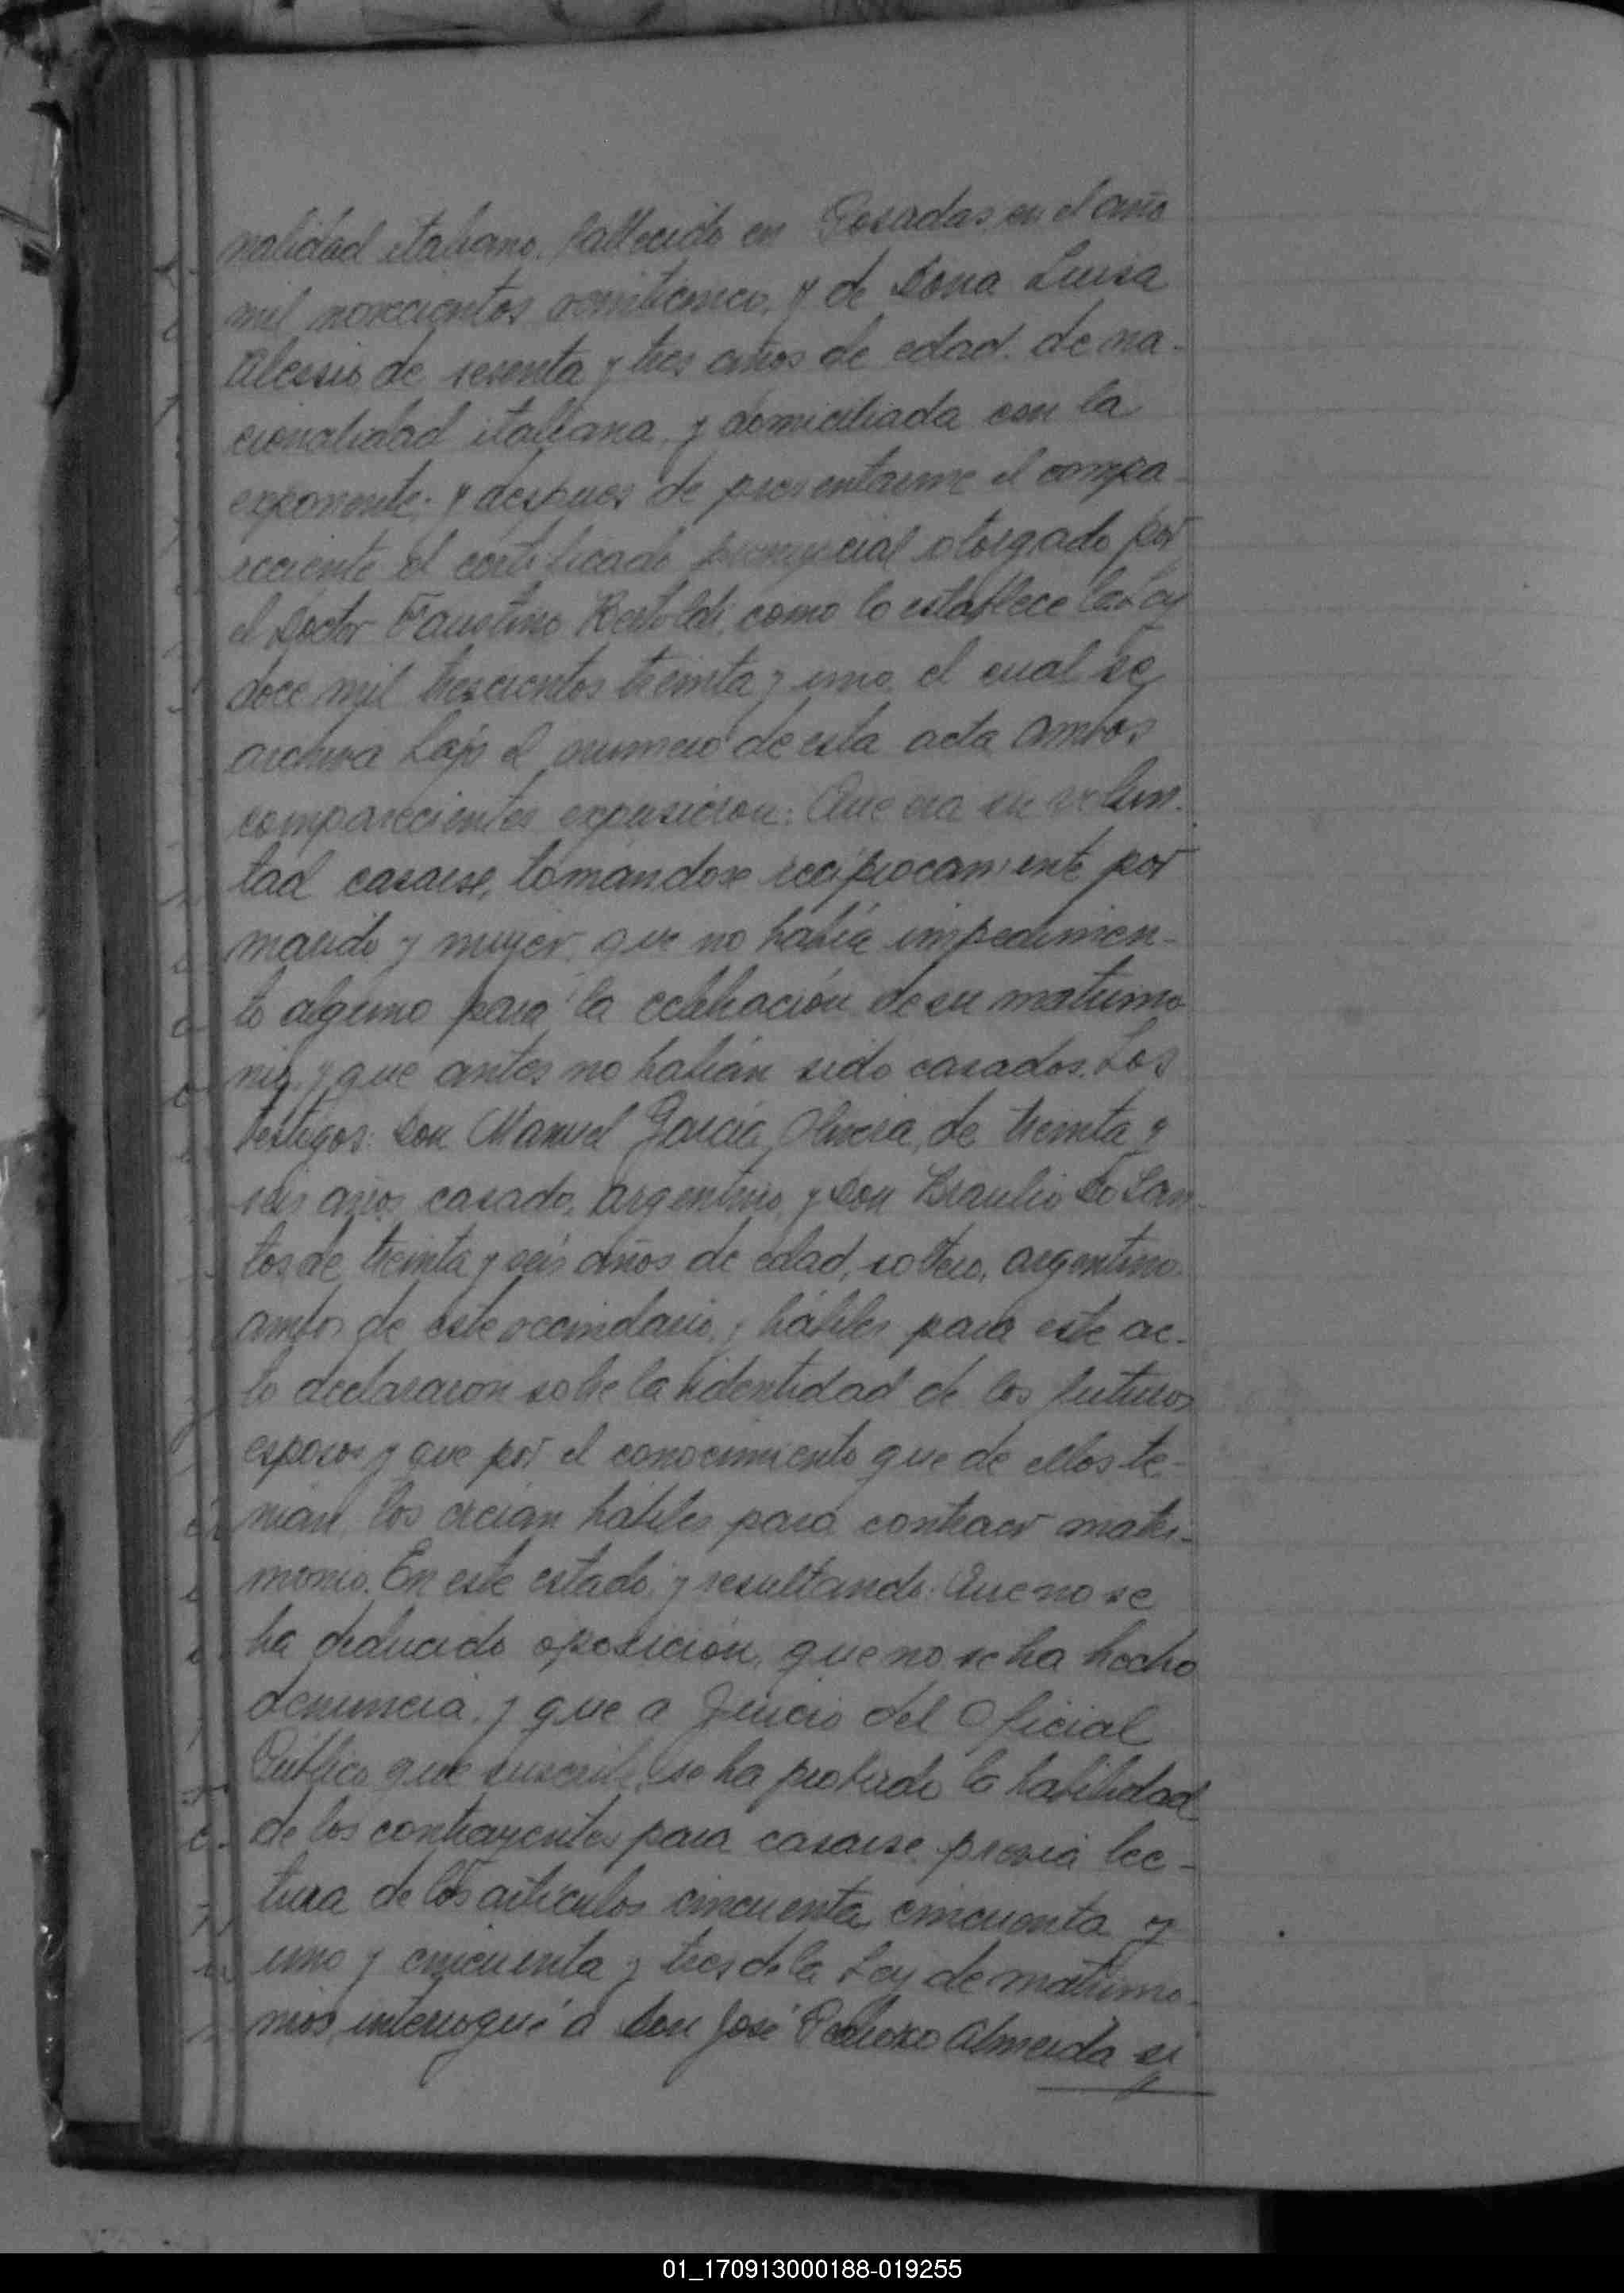 nalidad italiano, fallecido en Posadas, en el año
mil novecientos veinticinco, y de Doña Luisa
Alessio, de sesenta y tres años de edad, de na-
cionalidad italiana, y domiciliada con la
exponente; y despues de presentarme el compa-
reciente el certificado prenupcial otorgado por
el Doctor Faustino Bertoldi, como lo establece la Ley
doce mil trescientos treinta y uno, el cual se
archiva bajo el numero de esta acta ambos
comparecientes expusieron: Que era su volun-
tad casarse, tomandose reciprocamente por
marido y mujer, que no había impedimen-
to alguno para la celebración de su matrimo
nio, y que antes no habían sido casados. Los
testigos: Don Manuel García Olivera, de treinta y
seis años, casado, argentino, y Don Braulio Do San-
tos de treinta y seis años de edad, soltero, argentino
ambos de este vecindario, y hábiles para este ac-
to declararon sobre la identidad de los futuros
esposos y que por el conocimiento que de ellos te-
nian los creían hábiles para contraer matri-
monio. En este estado, y resultando: Que no se
ha deducido oposición, que no se ha hecho
denuncia, y que a Juicio del Oficial
Público que suscribe, se ha probado la habilidad
de los contrayentes para casarse, previa lec-
tura de los artículos cincuenta, cincuenta y
uno y cincuenta y tres de la Ley de matrimo-
nios, interrogué a Don José Almeida si
01_170913000188-019255